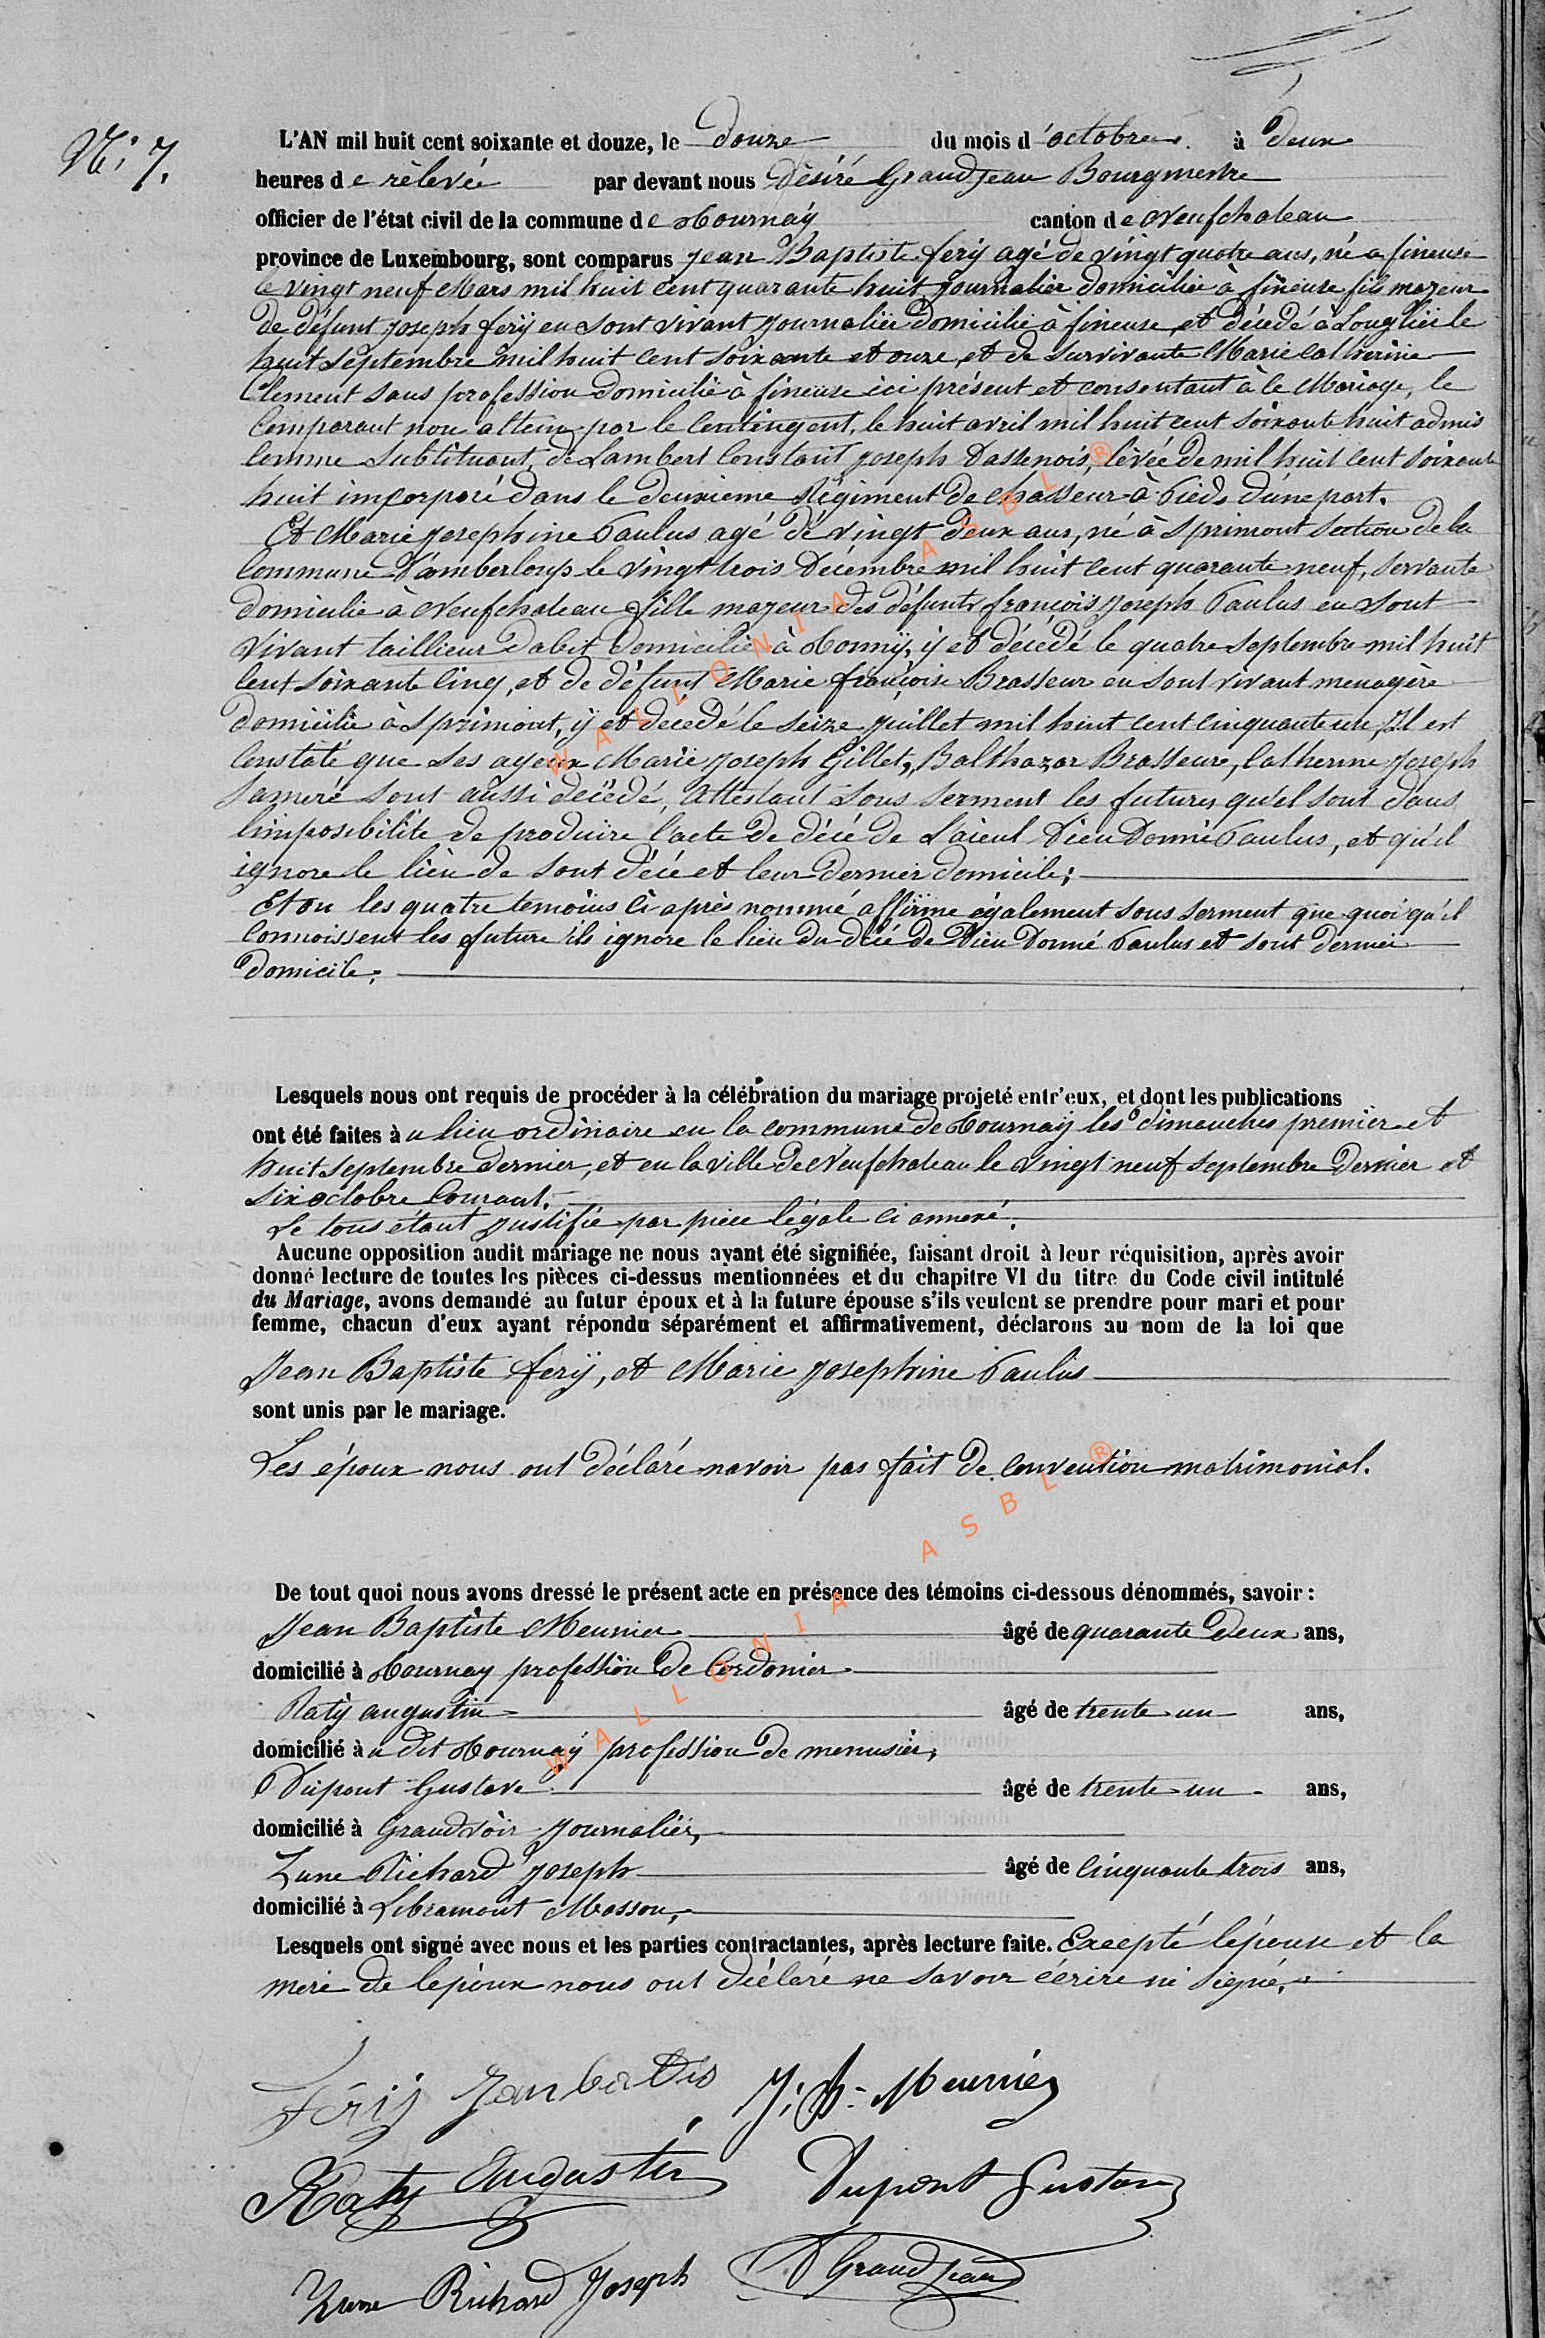 N: 7.
L'AN mil huit cent soixante et douze, le douze du mois d'octobre à deux
heures de rélevée par devant nous Désiré Grandjean Bourgmestre
officier de l'état civil de la commune de Tournay canton de Neufchateau
province de Luxembourg, sont comparus Jean Baptiste ferÿ agé de vingt quatre ans, né a fineuse
le vingt neuf Mars mil huit cent quarante huit journalier domicilié à fineuse fils majeur
de défunt Joseph ferÿ en sont vivant journalier domicilié à fineuse, et décedé à Longlier le
huit septembre mil huit cent soixante et onze, et de survivante Marie Catherine
Clement sans profession domicilié à fineuse ici présent et consentant à le Mariage, le
Comparant non attein par le Contingent, le huit avril mil huit cent soixante huit admis
comme Subtituant de Lambert Constant Joseph Dassenois, lévée de mil huit cent soixante
huit imcorporé dans le deuxieme Régiment de chasseur à Pieds d'une part.
Et Marie josephine Paulus agé de vingt deux ans, né à Sprimont section de la
Commune d'amberloup le vingt trois Décembre mil huit cent quarante neuf, servante
domicilié à Neufchateau fille majeur des défunts françois Joseph Paulus en sont
vivant taillieur d'abit domicilié à ÿ et décédé le quatre septembre mil huit
Cent soixante Cinq, et de défunt Marie françoise Brasseur en sont vivant menagère
domicilie à Sprimont, ÿ et decedé le seize juillet mil huit cent cinquante un, Il est
Constaté que ses ayeux Marie Joseph Gillet, Balthazar Brasseure, Catherine Joseph
Sameré sont aussi décédé, Attestant sous serment les futures qu'el sont dans
l'imposibilite de produire l'acte de décé de l'aieul Dieu Donné Paulus, et qu'il
ignore le lieu de sont décé et leur dernier domicile;
Et ou les quatre temoins ci après nommé affirme également sous serment que quoi qu'il
Connoissent les future ils ignore le lieu du décé de Dieu Donné Paulus et sont dernier
domicile;
Lesquels nous ont requis de procéder à la célébration du mariage projeté entr'eux, et dont les publications
ont été faites à u lieu ordinaire en la commune de Tournaÿ les dimanches premier et
huit septembre dernier, et en la ville de Neufchateau le vingt neuf septembre dernier et
six octobre Courant.
Le tous étant justifié par pièce légale ci annexé.
Aucune opposition audit mariage ne nous ayant été signifiée, faisant droit à leur réquisition, après avoir
donné lecture de toutes les pièces ci-dessus mentionnées et du chapitre VI du titre du Code civil intitulé
du Mariage, avons demandé au futur époux et à la future épouse s'ils veulent se prendre pour mari et pour
femme, chacun d'eux ayant répondu séparément et affirmativement, déclarons au nom de la loi que
Jean Baptiste ferÿ, et Marie Josephine Paulus
sont unis par le mariage.
Les époux nous ont déclaré navoir pas fait de convention matrimonial.
De tout quoi nous avons dressé le présent acte en présence des témoins ci-dessous dénommés, savoir :
Jean Baptiste Meunier âgé de quarante deux ans,
domicilié à Tournay profession de Cordonier
Raty augustin âgé de trente un ans,
domicilié à u dit Tournaÿ profession de menusier,
Dupont Gustave âgé de trente un ans,
domicilié à Grandvoir journalier,
Zune Richard Joseph âgé de Cinquante trois ans,
domicilié à Libramont Masson,
Lesquels ont signé avec nous et les parties contractantes, après lecture faite. Excepté l'épouse et la
mere de lepoux nous ont déclaré ne savoir écrire ni signé.
Férij Janbatis J: B: Meunier
Raty Augustin Dupont Gustave
Zune Richard Joseph D Grandjean
WALLONIA ASBL ®
WALLONIA ASBL ®